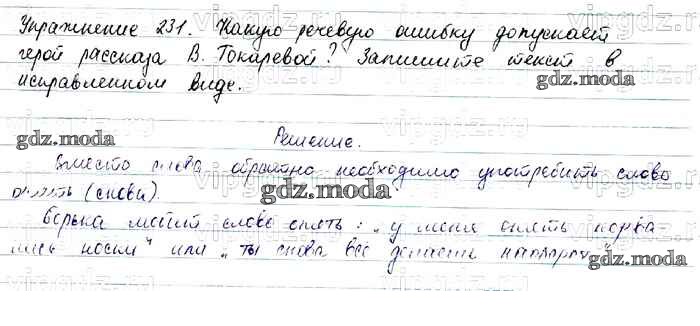 Упражнение 231. Какую речевую ошибку допускает
герой рассказа В. Токаревой? Запишите текст в
исправленном виде.
gdz.moda
gdz.moda
Решение.
Вместо слова обратно необходимо употребить слово
опять (снова).
gdz.moda
Борька молит слово опять: „у меня опять порва
лись носки" или „ты снова все делаешь
gdz.moda